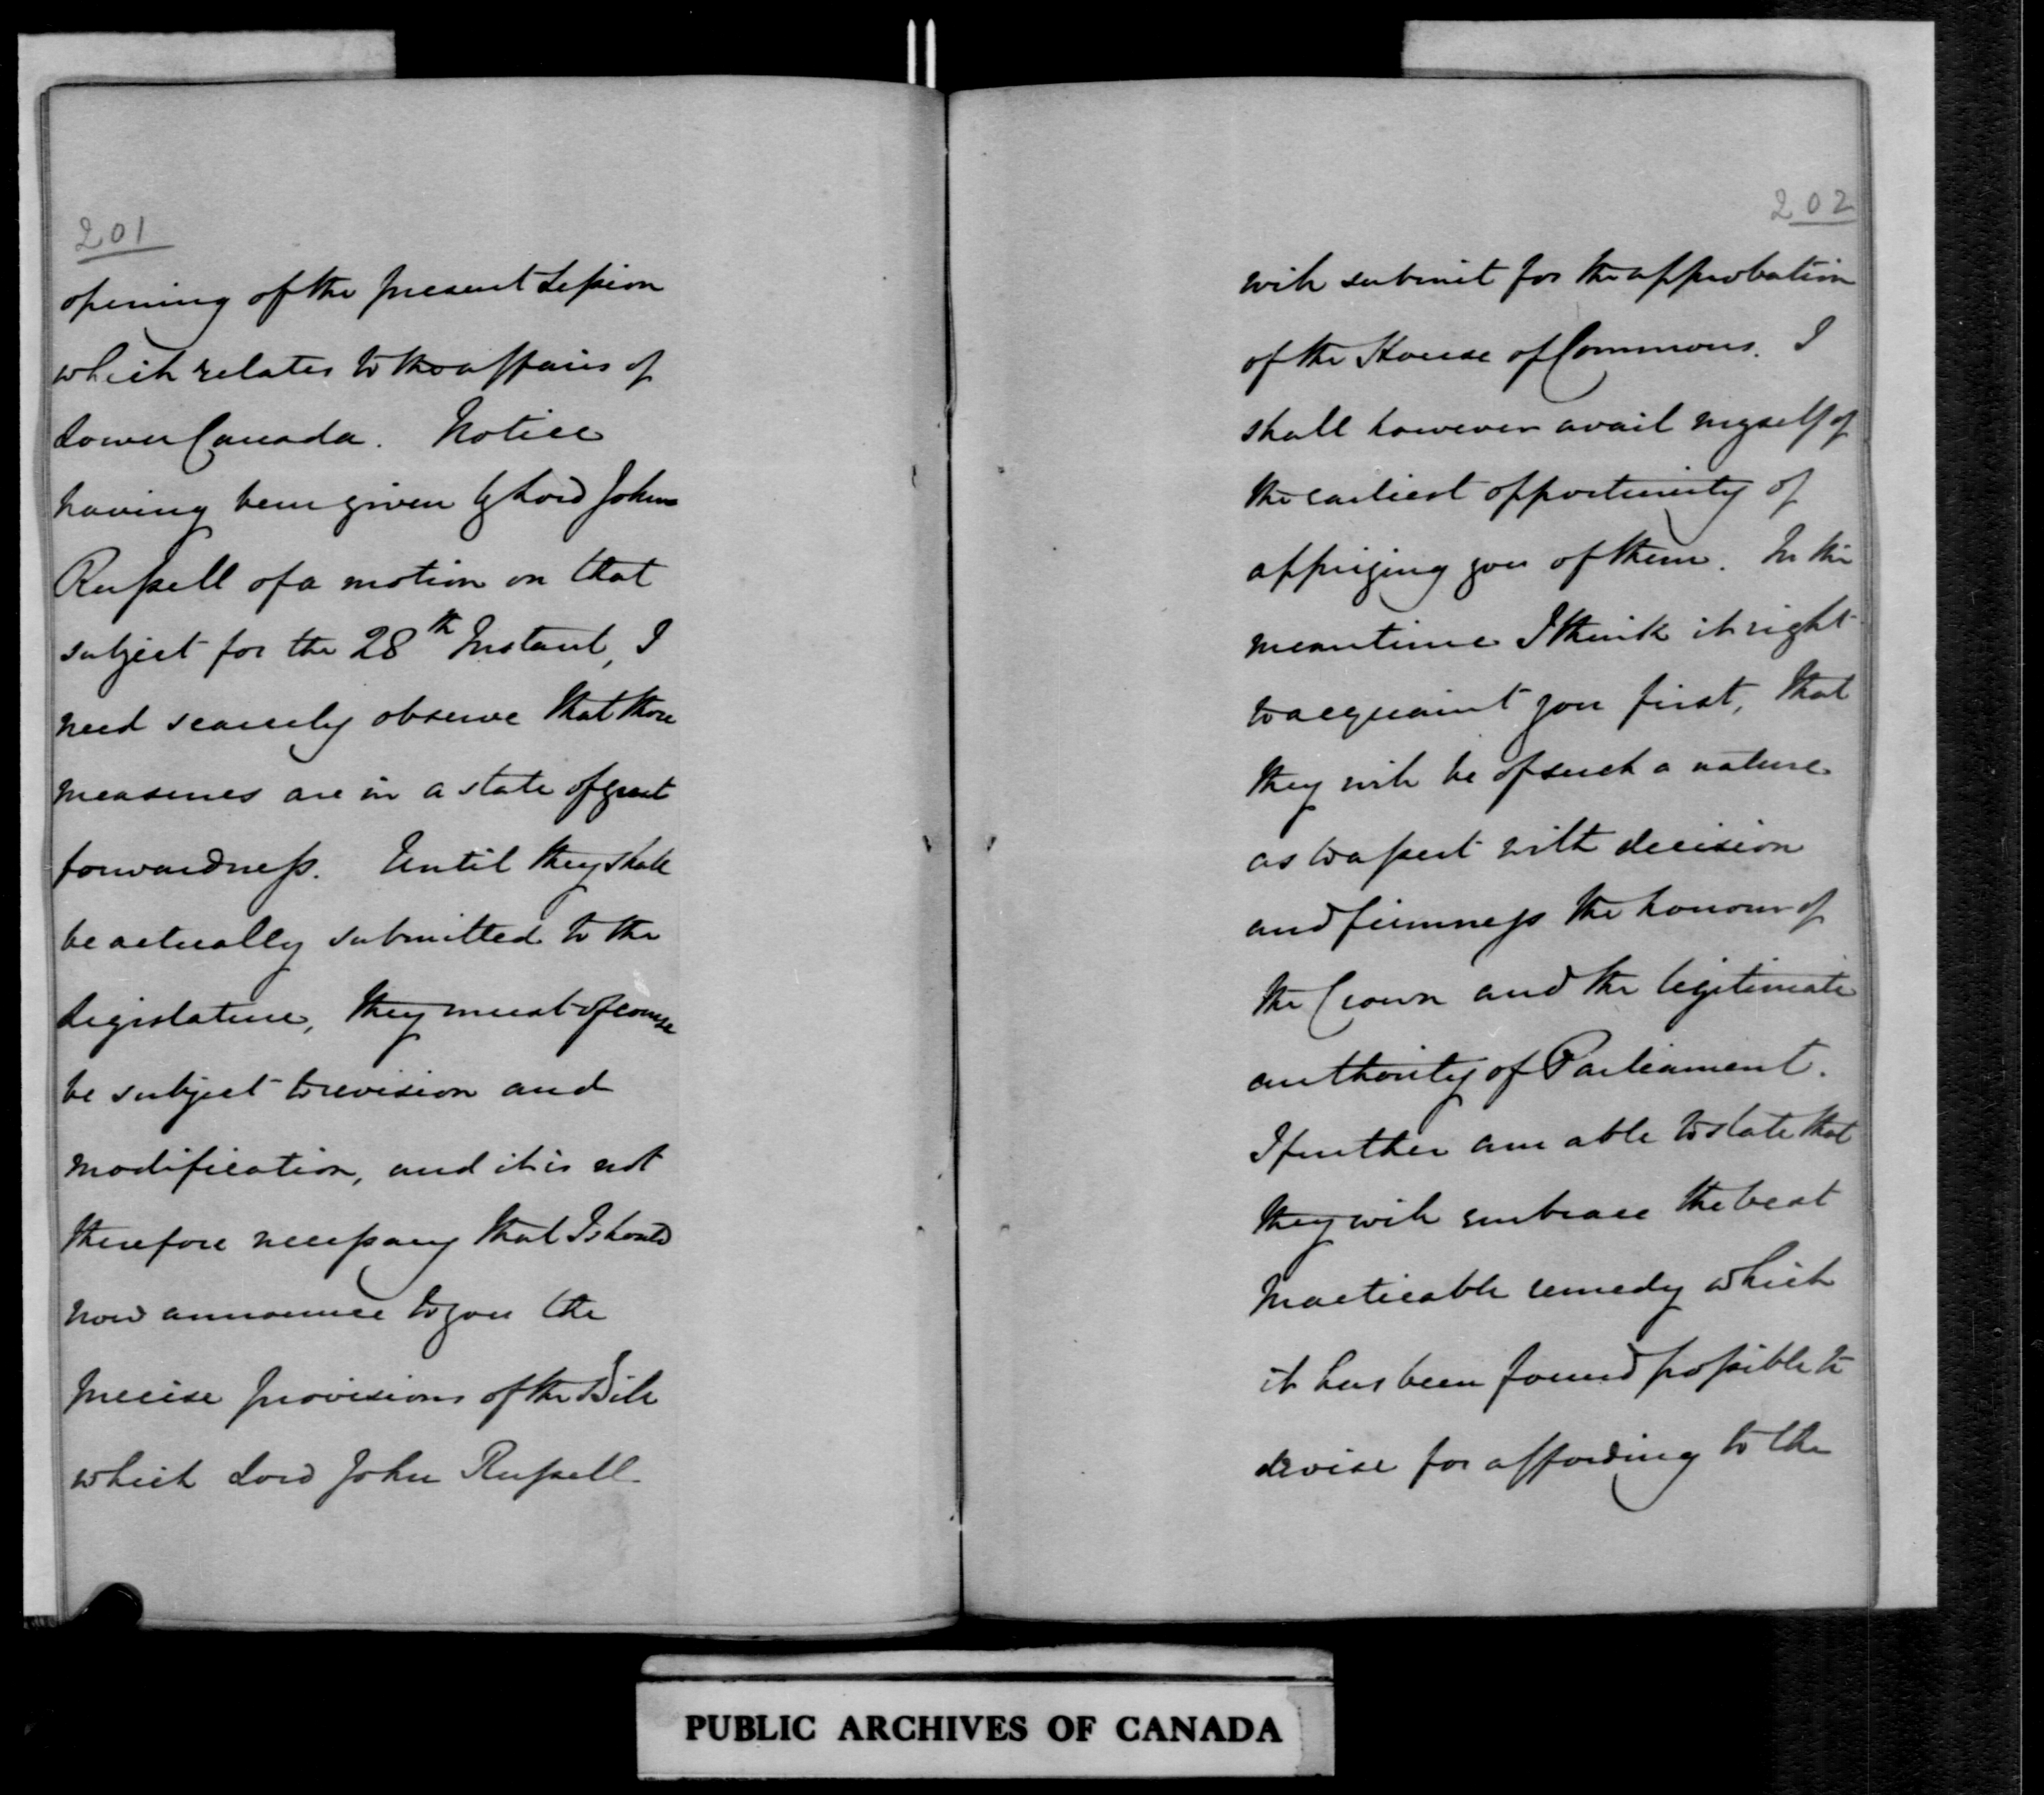 201
opening of the present Session
which relates to the affairs of
Lower Canada. Notice
having been given by Lord John
Russell of a motion on that
subject for the 28th Instant, I
need scarcely observe that those
measures are in a state of great
forwardness. Until they shall
be actually submitted to the
Legislature, they must of course
be subject to revision and
modification, and it is not
therefore necessary that I should
now announce to you the
precise provisions of the Bill
which Lord John Russell
202
will submit for the approbation
of the House of Commons. I
shall however avail myself of
the earliest opportunity of
apprizing you of them. In the
meantime I think it right
to acquaint you first, that
they will be of such a nature
as to assert with decision
and firmness the honour of
the Crown and the legitimate
authority of Parliament.
I further am able to state that
they will embrace the best
practicable remedy which
it has been found possible to
devise for affording to the
PUBLIC ARCHIVES OF CANADA